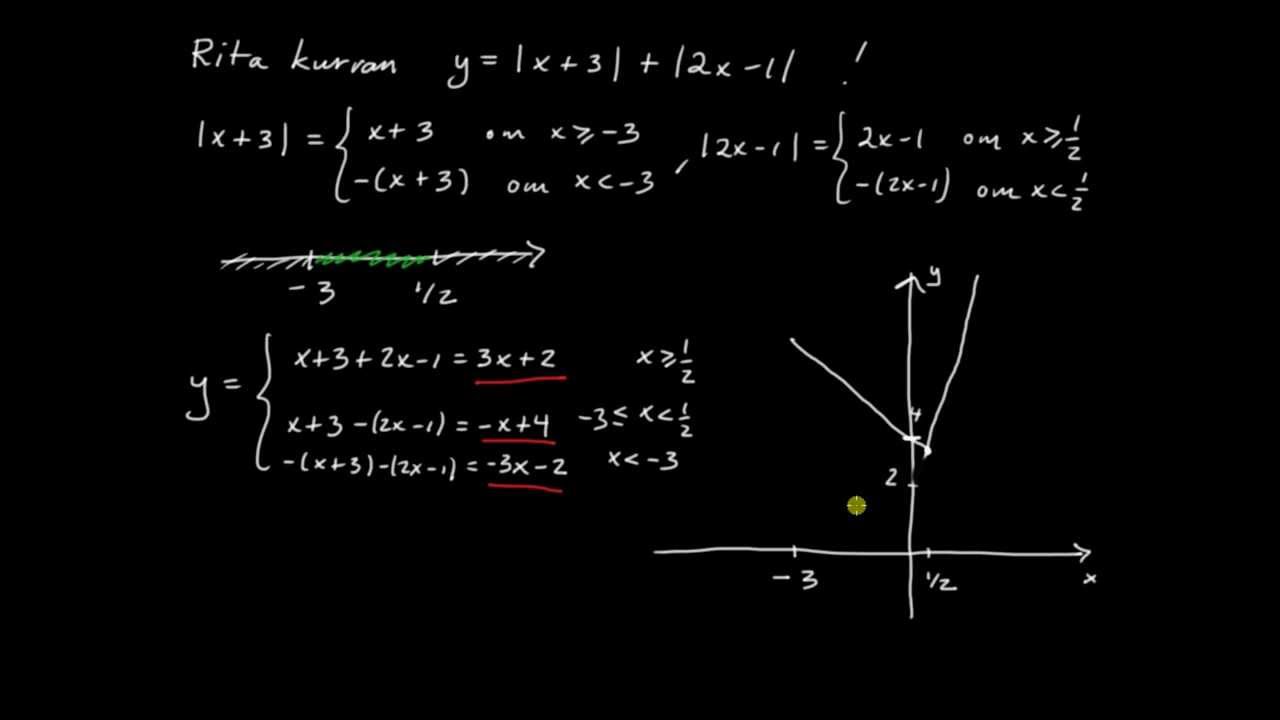 Rita kurvan y = |x+3| + |2x-1| !
|x+3| = { x+3 om x ≥ -3 , |2x-1| = { 2x-1 om x ≥ 1/2
-(x+3) om x < -3 -(2x-1) om x < 1/2
-3 1/2
y = { x+3+2x-1 = 3x+2 x ≥ 1/2
x+3-(2x-1) = -x+4 -3 ≤ x < 1/2
-(x+3)-(2x-1) = -3x-2 x < -3
y
4
2
-3 1/2 x